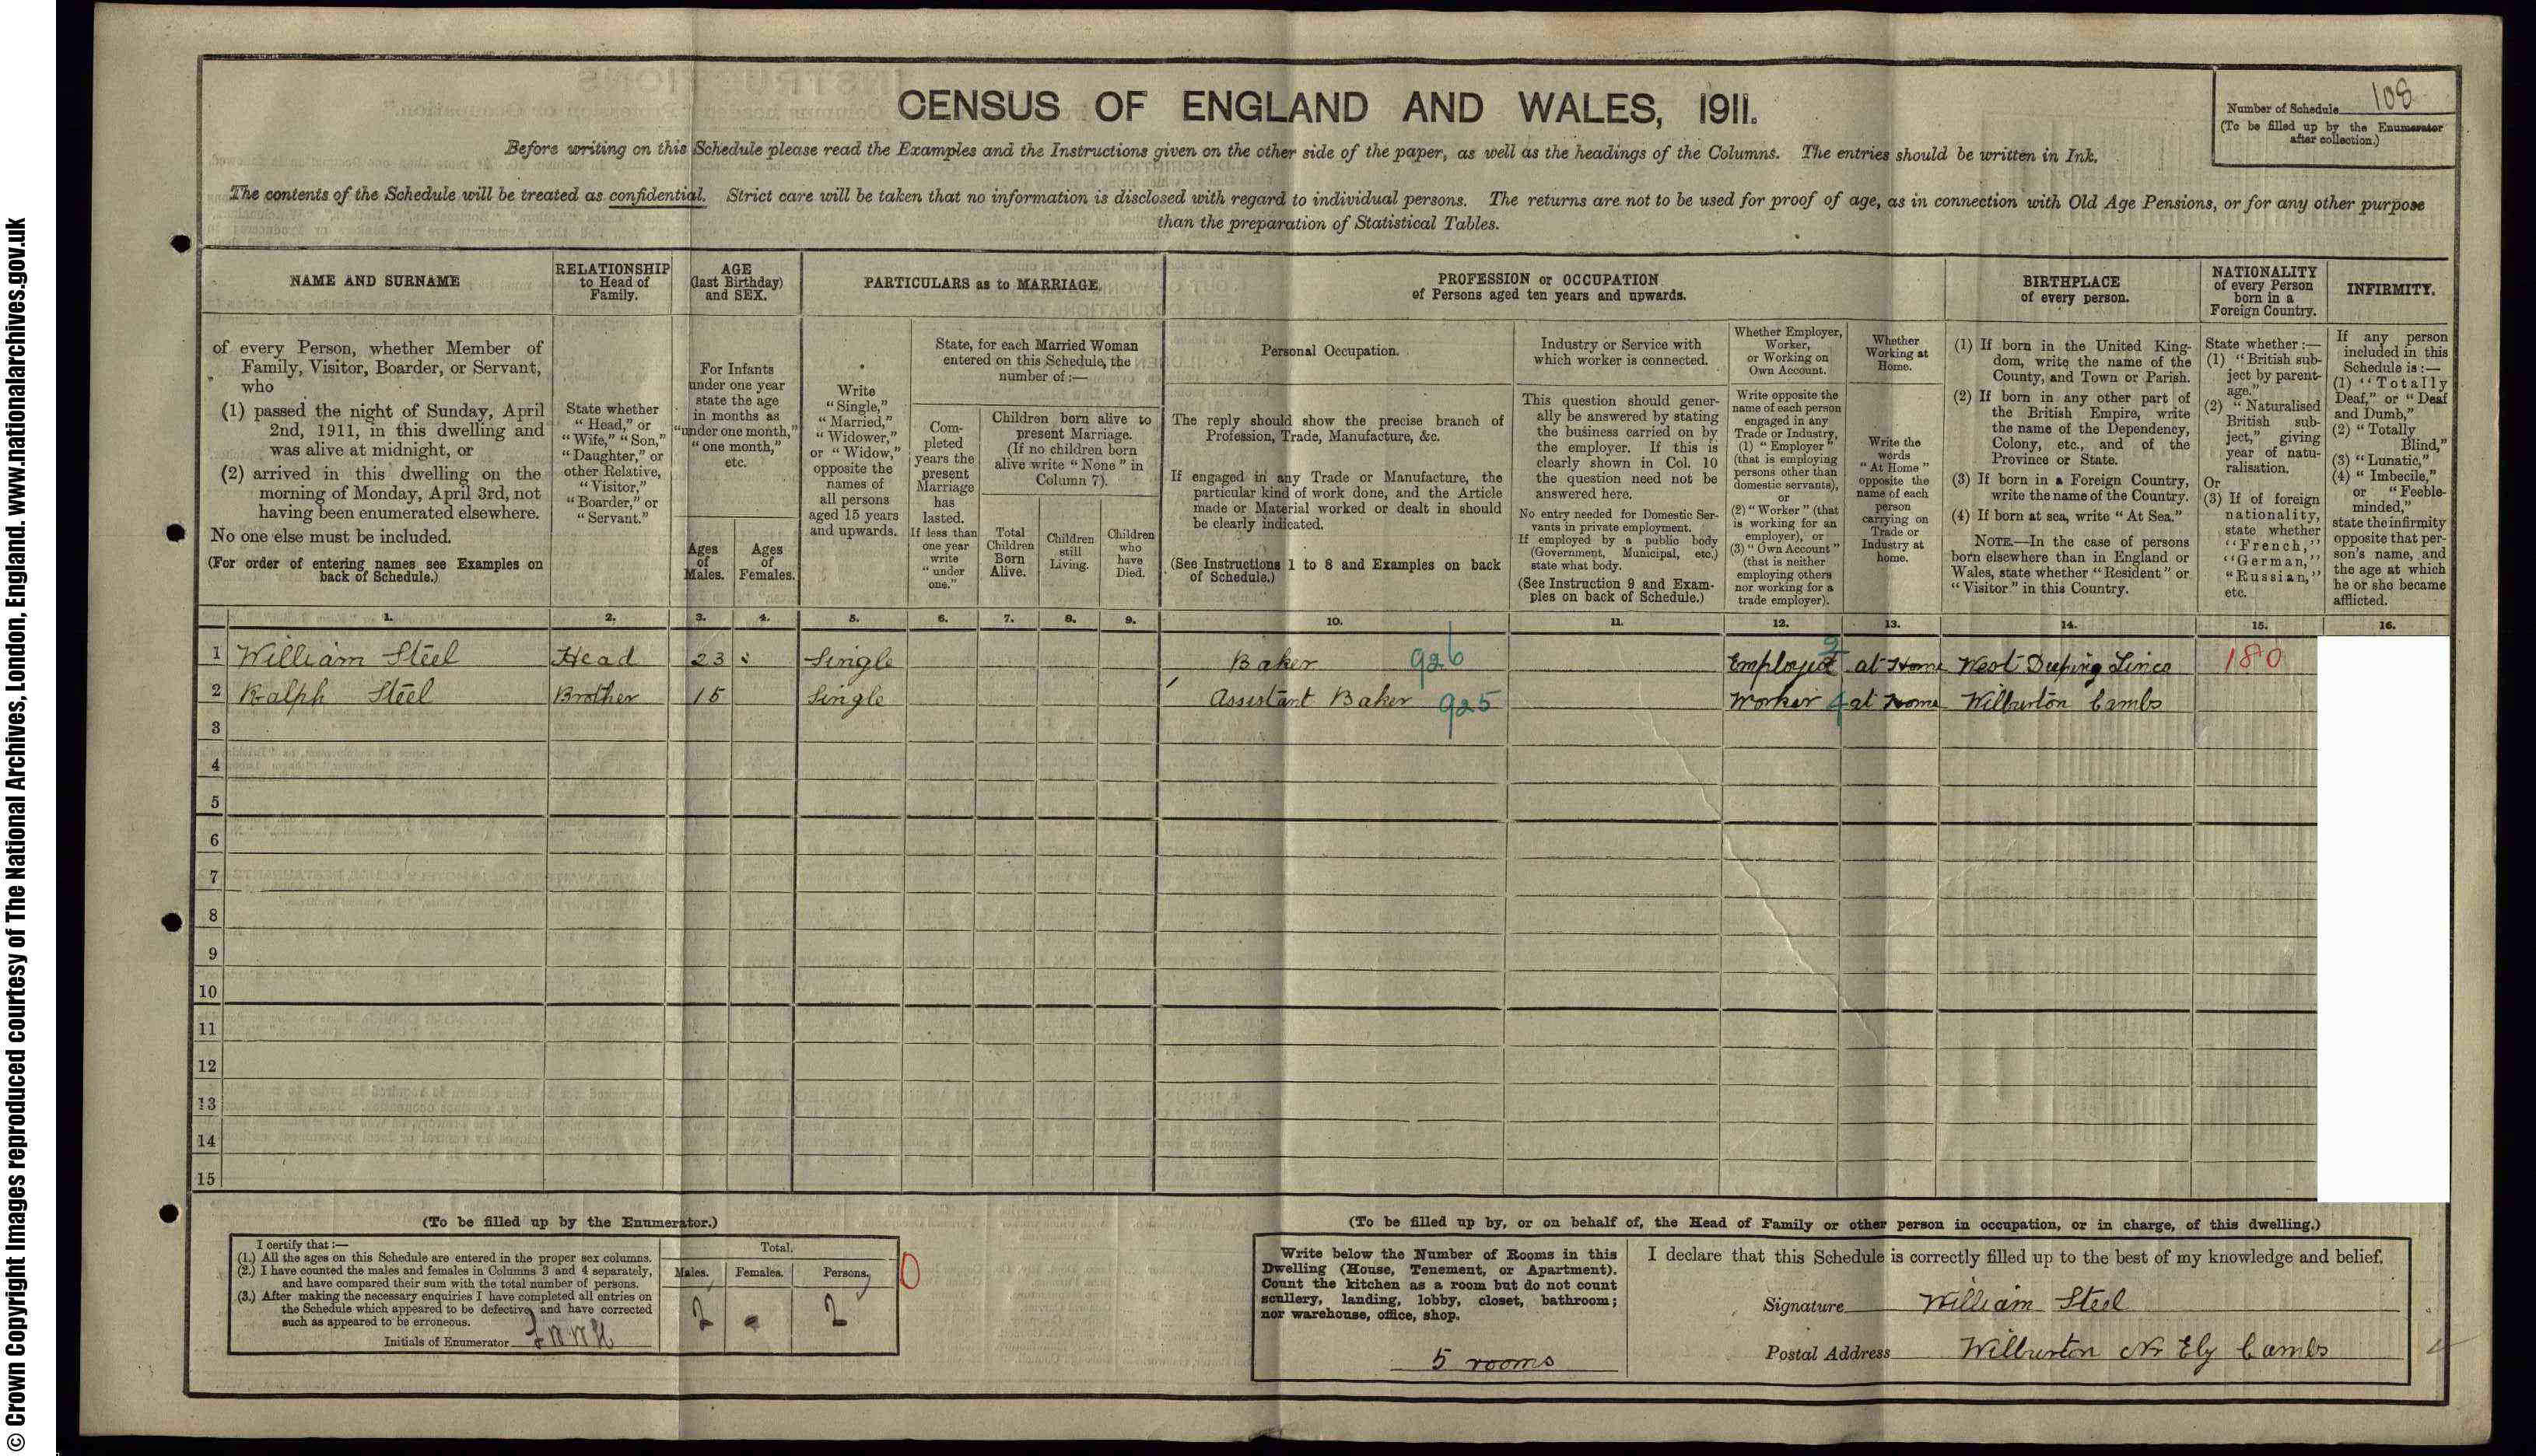 © Crown Copyright Images reproduced courtesy of The National Archives, London, England. www.nationalarchives.gov.uk
CENSUS OF ENGLAND AND WALES, 1911.
Number of Schedule 108
(To be filled up by the Enumerator
after collection.)
Before writing on this Schedule please read the Examples and the Instructions given on the other side of the paper, as well as the headings of the Columns. The entries should be written in Ink.
The contents of the Schedule will be treated as confidential. Strict care will be taken that no information is disclosed with regard to individual persons. The returns are not to be used for proof of age, as in connection with Old Age Pensions, or for any other purpose
than the preparation of Statistical Tables.
NAME AND SURNAME
of every Person, whether Member of
Family, Visitor, Boarder, or Servant,
who
(1) passed the night of Sunday, April
2nd, 1911, in this dwelling and
was alive at midnight, or
(2) arrived in this dwelling on the
morning of Monday, April 3rd, not
having been enumerated elsewhere.
No one else must be included.
(For order of entering names see Examples on
back of Schedule.)
RELATIONSHIP
to Head of
Family.
State whether
"Head," or
"Wife," "Son,"
"Daughter," or
other Relative,
"Visitor,"
"Boarder," or
"Servant."
AGE
(last Birthday)
and SEX.
For Infants
under one year
state the age
in months as
"under one month,"
"one month,"
etc.
Ages
of
Males.
Ages
of
Females.
PARTICULARS as to MARRIAGE.
Write
"Single,"
"Married,"
"Widower,"
or "Widow,"
opposite the
names of
all persons
aged 15 years
and upwards.
State, for each Married Woman
entered on this Schedule, the
number of :—
Com-
pleted
years the
present
Marriage
has
lasted.
If less than
one year
write
"under
one."
Children born alive to
present Marriage.
(If no children born
alive write "None" in
Column 7).
Total
Children
Born
Alive.
Children
still
Living.
Children
who
have
Died.
PROFESSION or OCCUPATION
of Persons aged ten years and upwards.
Personal Occupation.
The reply should show the precise branch of
Profession, Trade, Manufacture, &c.
If engaged in any Trade or Manufacture, the
particular kind of work done, and the Article
made or Material worked or dealt in should
be clearly indicated.
(See Instructions 1 to 8 and Examples on back
of Schedule.)
Industry or Service with
which worker is connected.
This question should gener-
ally be answered by stating
the business carried on by
the employer. If this is
clearly shown in Col. 10
the question need not be
answered here.
No entry needed for Domestic Ser-
vants in private employment.
If employed by a public body
(Government, Municipal, etc.)
state what body.
(See Instruction 9 and Exam-
ples on back of Schedule.)
Whether Employer,
Worker,
or Working on
Own Account.
Write opposite the
name of each person
engaged in any
Trade or Industry,
(1) "Employer"
(that is employing
persons other than
domestic servants),
or
(2) "Worker" (that
is working for an
employer), or
(3) "Own Account"
(that is neither
employing others
nor working for a
trade employer).
Whether
Working at
Home.
Write the
words
"At Home"
opposite the
name of each
person
carrying on
Trade or
Industry at
home.
BIRTHPLACE
of every person.
(1) If born in the United King-
dom, write the name of the
County, and Town or Parish.
(2) If born in any other part of
the British Empire, write
the name of the Dependency,
Colony, etc., and of the
Province or State.
(3) If born in a Foreign Country,
write the name of the Country.
(4) If born at sea, write "At Sea."
NOTE.—In the case of persons
born elsewhere than in England or
Wales, state whether "Resident" or
"Visitor" in this Country.
NATIONALITY
of every Person
born in a
Foreign Country.
State whether :—
(1) "British sub-
ject by parent-
age."
(2) "Naturalised
British sub-
ject," giving
year of natu-
ralisation.
Or
(3) If of foreign
nationality,
state whether
"French,"
"German,"
"Russian,"
etc.
INFIRMITY.
If any person
included in this
Schedule is :—
(1) "Totally
Deaf," or "Deaf
and Dumb,"
(2) "Totally
Blind,"
(3) "Lunatic,"
(4) "Imbecile,"
or "Feeble-
minded,"
state the infirmity
opposite that per-
son's name, and
the age at which
he or she became
afflicted.
1. 2. 3. 4. 5. 6. 7. 8. 9. 10. 11. 12. 13. 14. 15. 16.
1 William Steel Head 23 Single Baker 926 Employer 2 at Home West Deeping Lincs 180
2 Ralph Steel Brother 15 Single Assistant Baker 925 Worker 4 at Home Wilburton Cambs
3
4
5
6
7
8
9
10
11
12
13
14
15
(To be filled up by the Enumerator.)
I certify that :—
(1.) All the ages on this Schedule are entered in the proper sex columns.
(2.) I have counted the males and females in Columns 3 and 4 separately,
and have compared their sum with the total number of persons.
(3.) After making the necessary enquiries I have completed all entries on
the Schedule which appeared to be defective, and have corrected
such as appeared to be erroneous.
Initials of Enumerator
Total.
Males. Females. Persons.
2 - 2
0
(To be filled up by, or on behalf of, the Head of Family or other person in occupation, or in charge, of this dwelling.)
Write below the Number of Rooms in this
Dwelling (House, Tenement, or Apartment).
Count the kitchen as a room but do not count
scullery, landing, lobby, closet, bathroom;
nor warehouse, office, shop.
5 rooms
I declare that this Schedule is correctly filled up to the best of my knowledge and belief.
Signature William Steel
Postal Address Wilburton Nr Ely Cambs